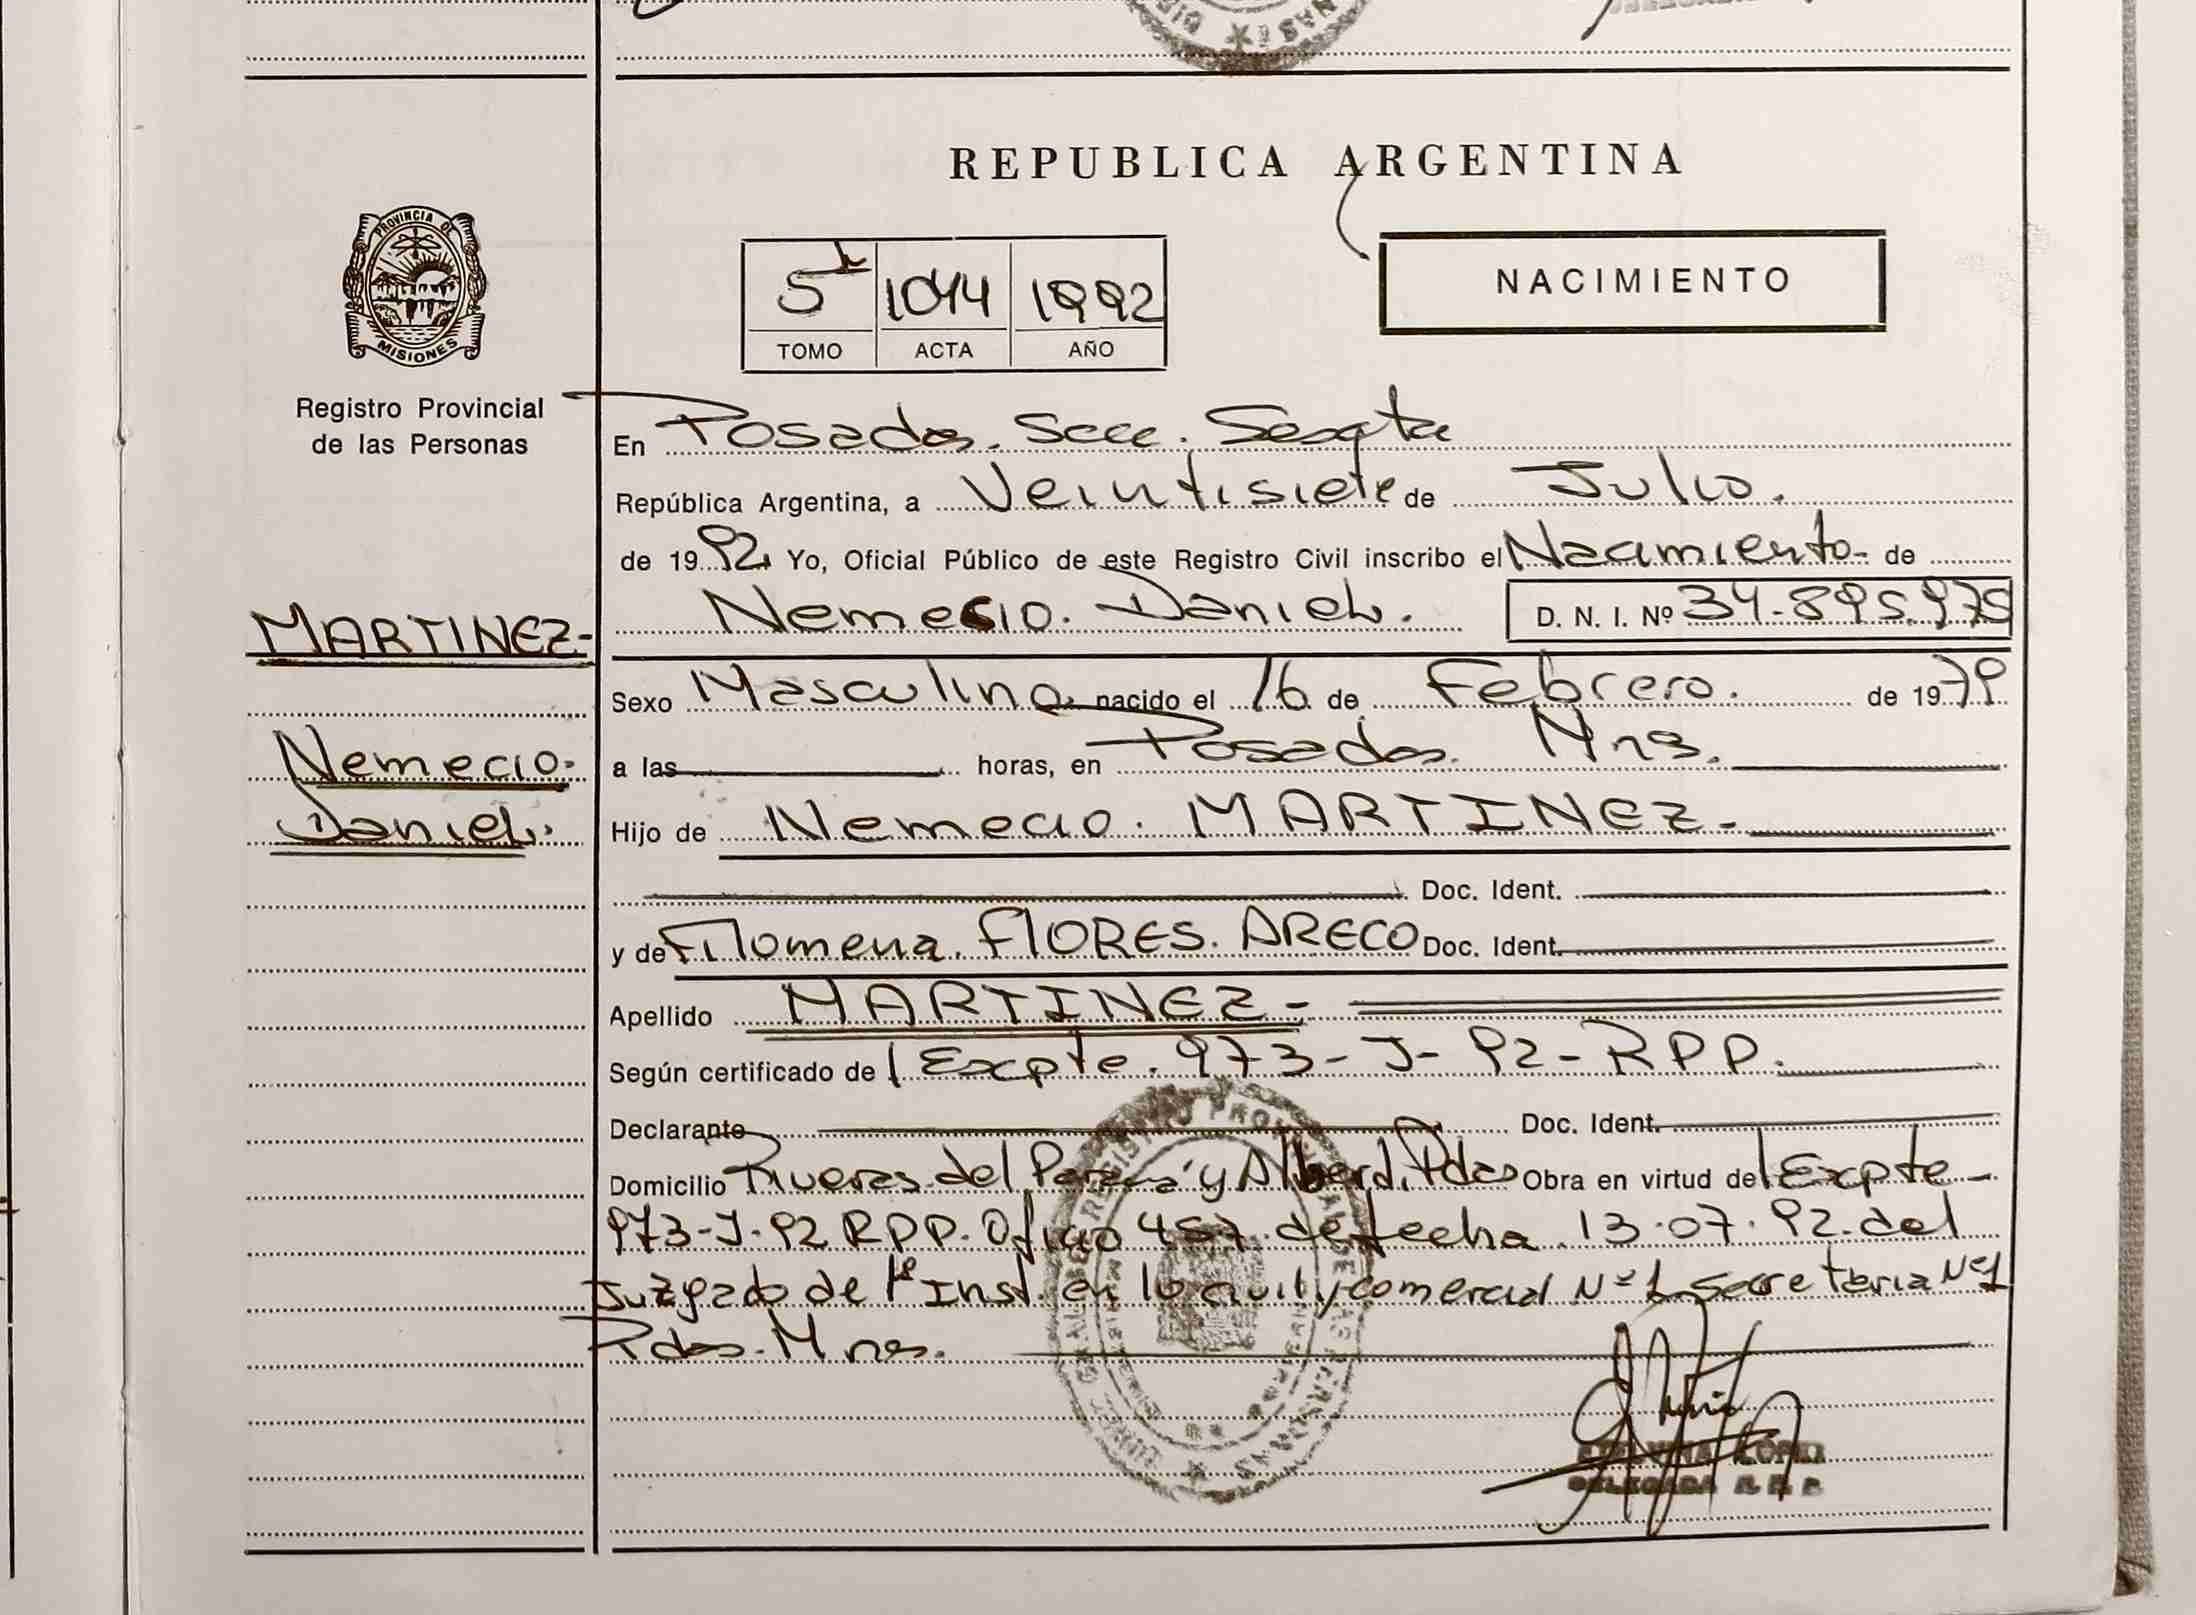 REPUBLICA ARGENTINA
PROVINCIA DE
MISIONES
Registro Provincial
de las Personas
5 1044 1992
TOMO ACTA AÑO
NACIMIENTO
En Posadas. Secc. Sexta
República Argentina, a Veintisiete de Julio.
de 1992 Yo, Oficial Público de este Registro Civil inscribo el Nacimiento- de
Nemecio. Daniel. D. N. I. Nº 34.895.975
MARTINEZ-
Nemecio.
Daniel.
Sexo Masculino nacido el 16 de Febrero. de 1979
a las horas, en Posadas. Mnes.
Hijo de Nemecio. MARTINEZ-
Doc. Ident.
y de Filomena. FLORES. ARECO Doc. Ident.
Apellido MARTINEZ-
Según certificado de l Expte. 973-J-92-RPP.
Declarante Doc. Ident.
Domicilio Riveras del Paraná y Alberdi Pdas Obra en virtud de l Expte-
973-J-92 RPP. Oficio 457 de fecha 13.07.92. del
Juzgado de 1º Inst. en lo civil y comercial Nº 1 Secretaria Nº 1
Pdas. Mnes.
LOPEZ
DELEGADA R. P. P.